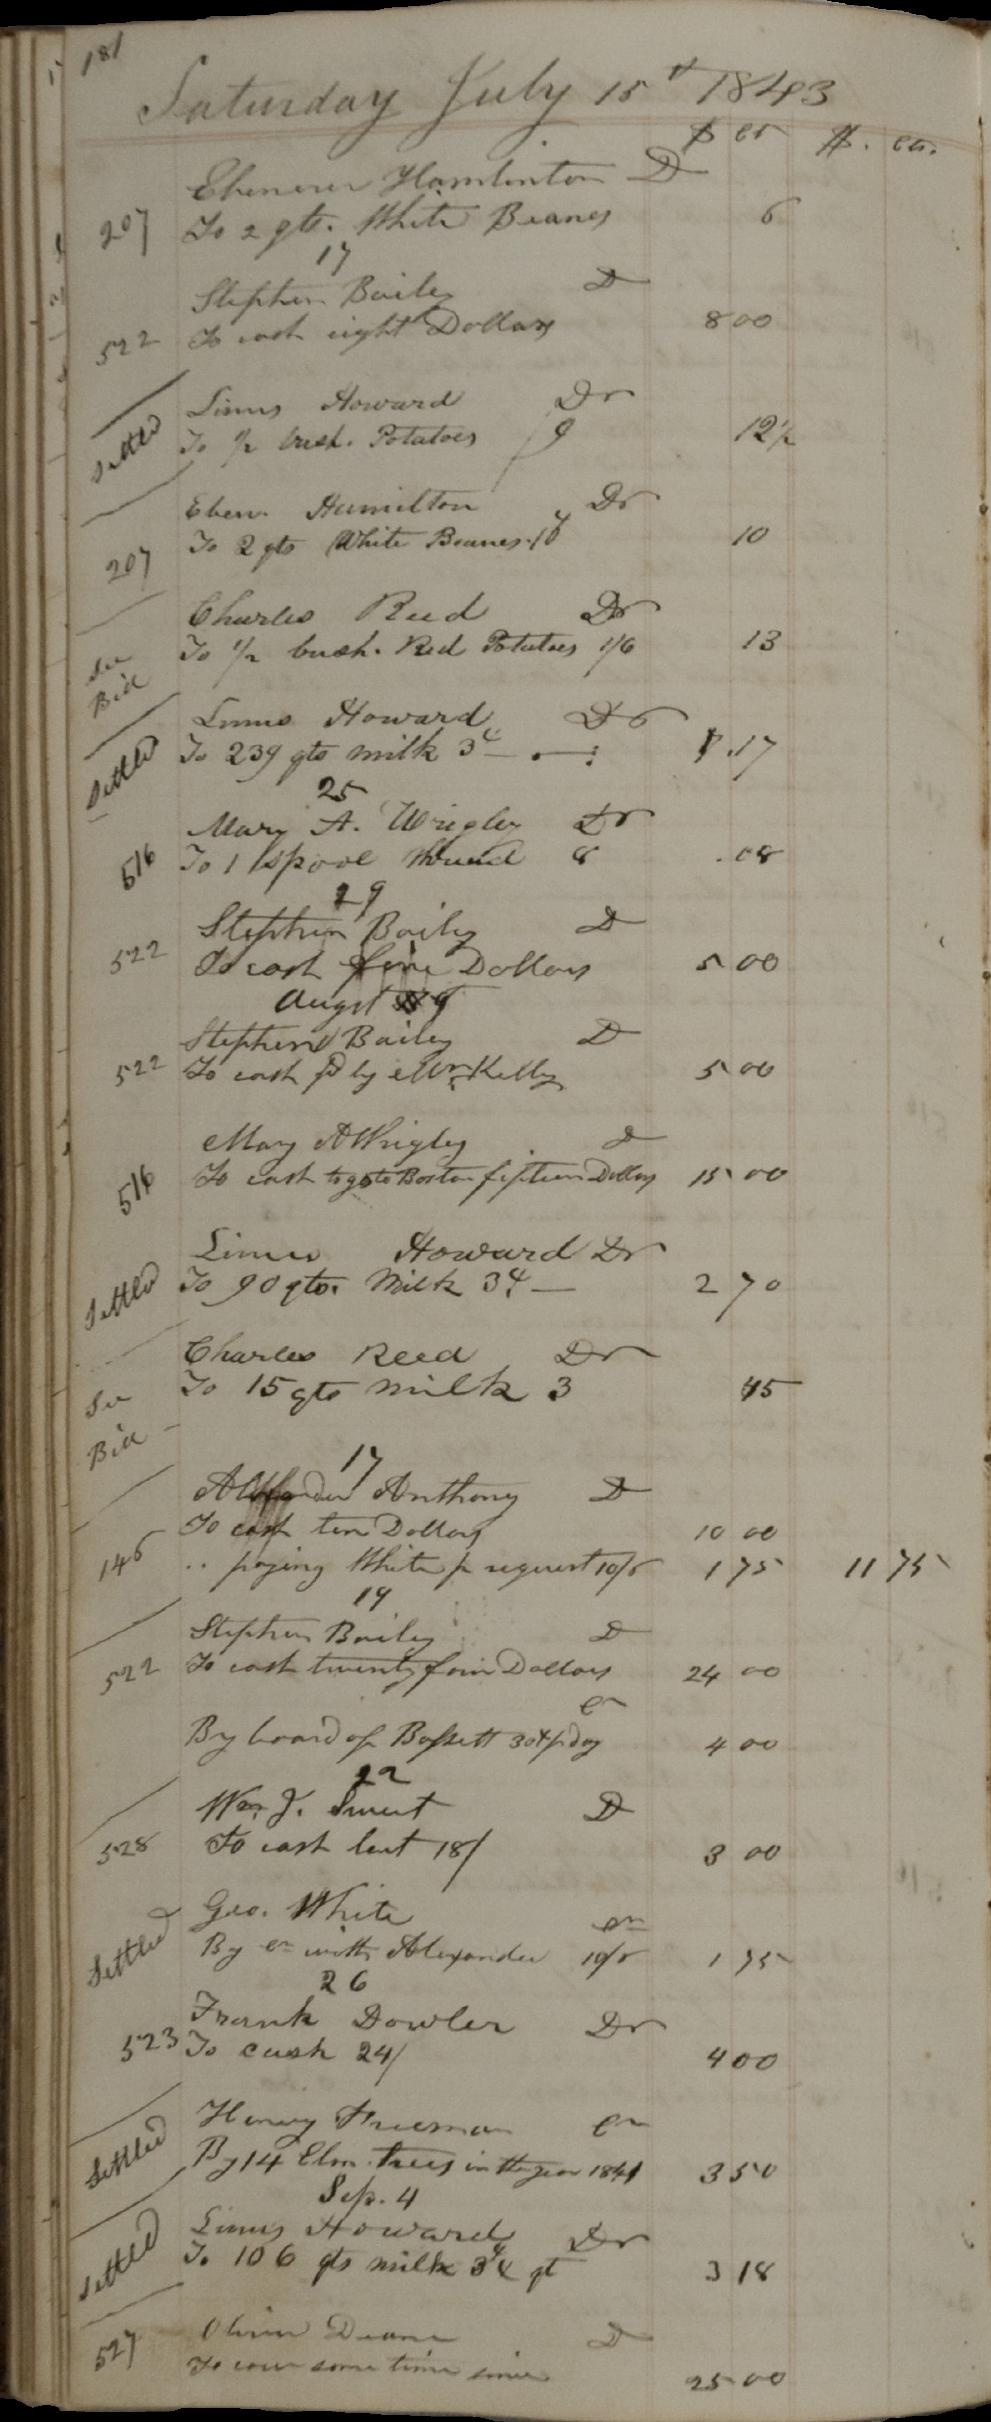 181
Saturday July 15th 1843
$ cts $. cts.
Ebenezer Hamlinton D
207 To 2 qts. White Beanes 6
17
Stephen Bailey D
522 To cash eight Dollars 8 00
Linus Howard Dr
Settled To 1/2 bush. Potatoes /9 12 1/2
Eben. Hamilton Dr
207 To 2 qts White Beanes 10
Charles Reed Dr
See Bill To 1/2 bush. Red Potatoes 1/6 13
Linus Howard Dr
Settled To 239 qts milk 3¢ 7.17
25
Mary A. Wrigley Dr
516 To 1 spool thread 8 .08
29
Stephen Bailey D
522 To cash five Dollars 5 00
Augst 9
Stephen Bailey D
522 To cash pd by Mr Kelly 5 00
Mary A Wrigley D
516 To cash to go to Boston fifteen Dollars 15 00
Linus Howard Dr
Settled To 90 qts. Milk 3¢ 2 70
Charles Reed Dr
See Bill To 15 qts milk 3 45
17
Alexander Anthony D
To cash ten Dollars 10 00
146 .. paying White pr request 10/6 1 75 11 75
19
Stephen Bailey D
522 To cash twenty four Dollars 24 00
Cr
By board of Bassett 30¢ pr Day 4 00
22
Wm. J. Sweet D
528 To cash lent 18/ 3 00
Geo. White Cr
Settled By Cr with Alexander 10/6 1 75
26
Frank Dowler Dr
523 To cash 24/ 4 00
Henry Freeman Cr
Settled By 14 Elm trees in the year 1841 3 50
Sep. 4
Linus Howard Dr
Settled To 106 qts milk 3¢ qt 3 18
Oliver Deane D
527 To cow some time since 25 00